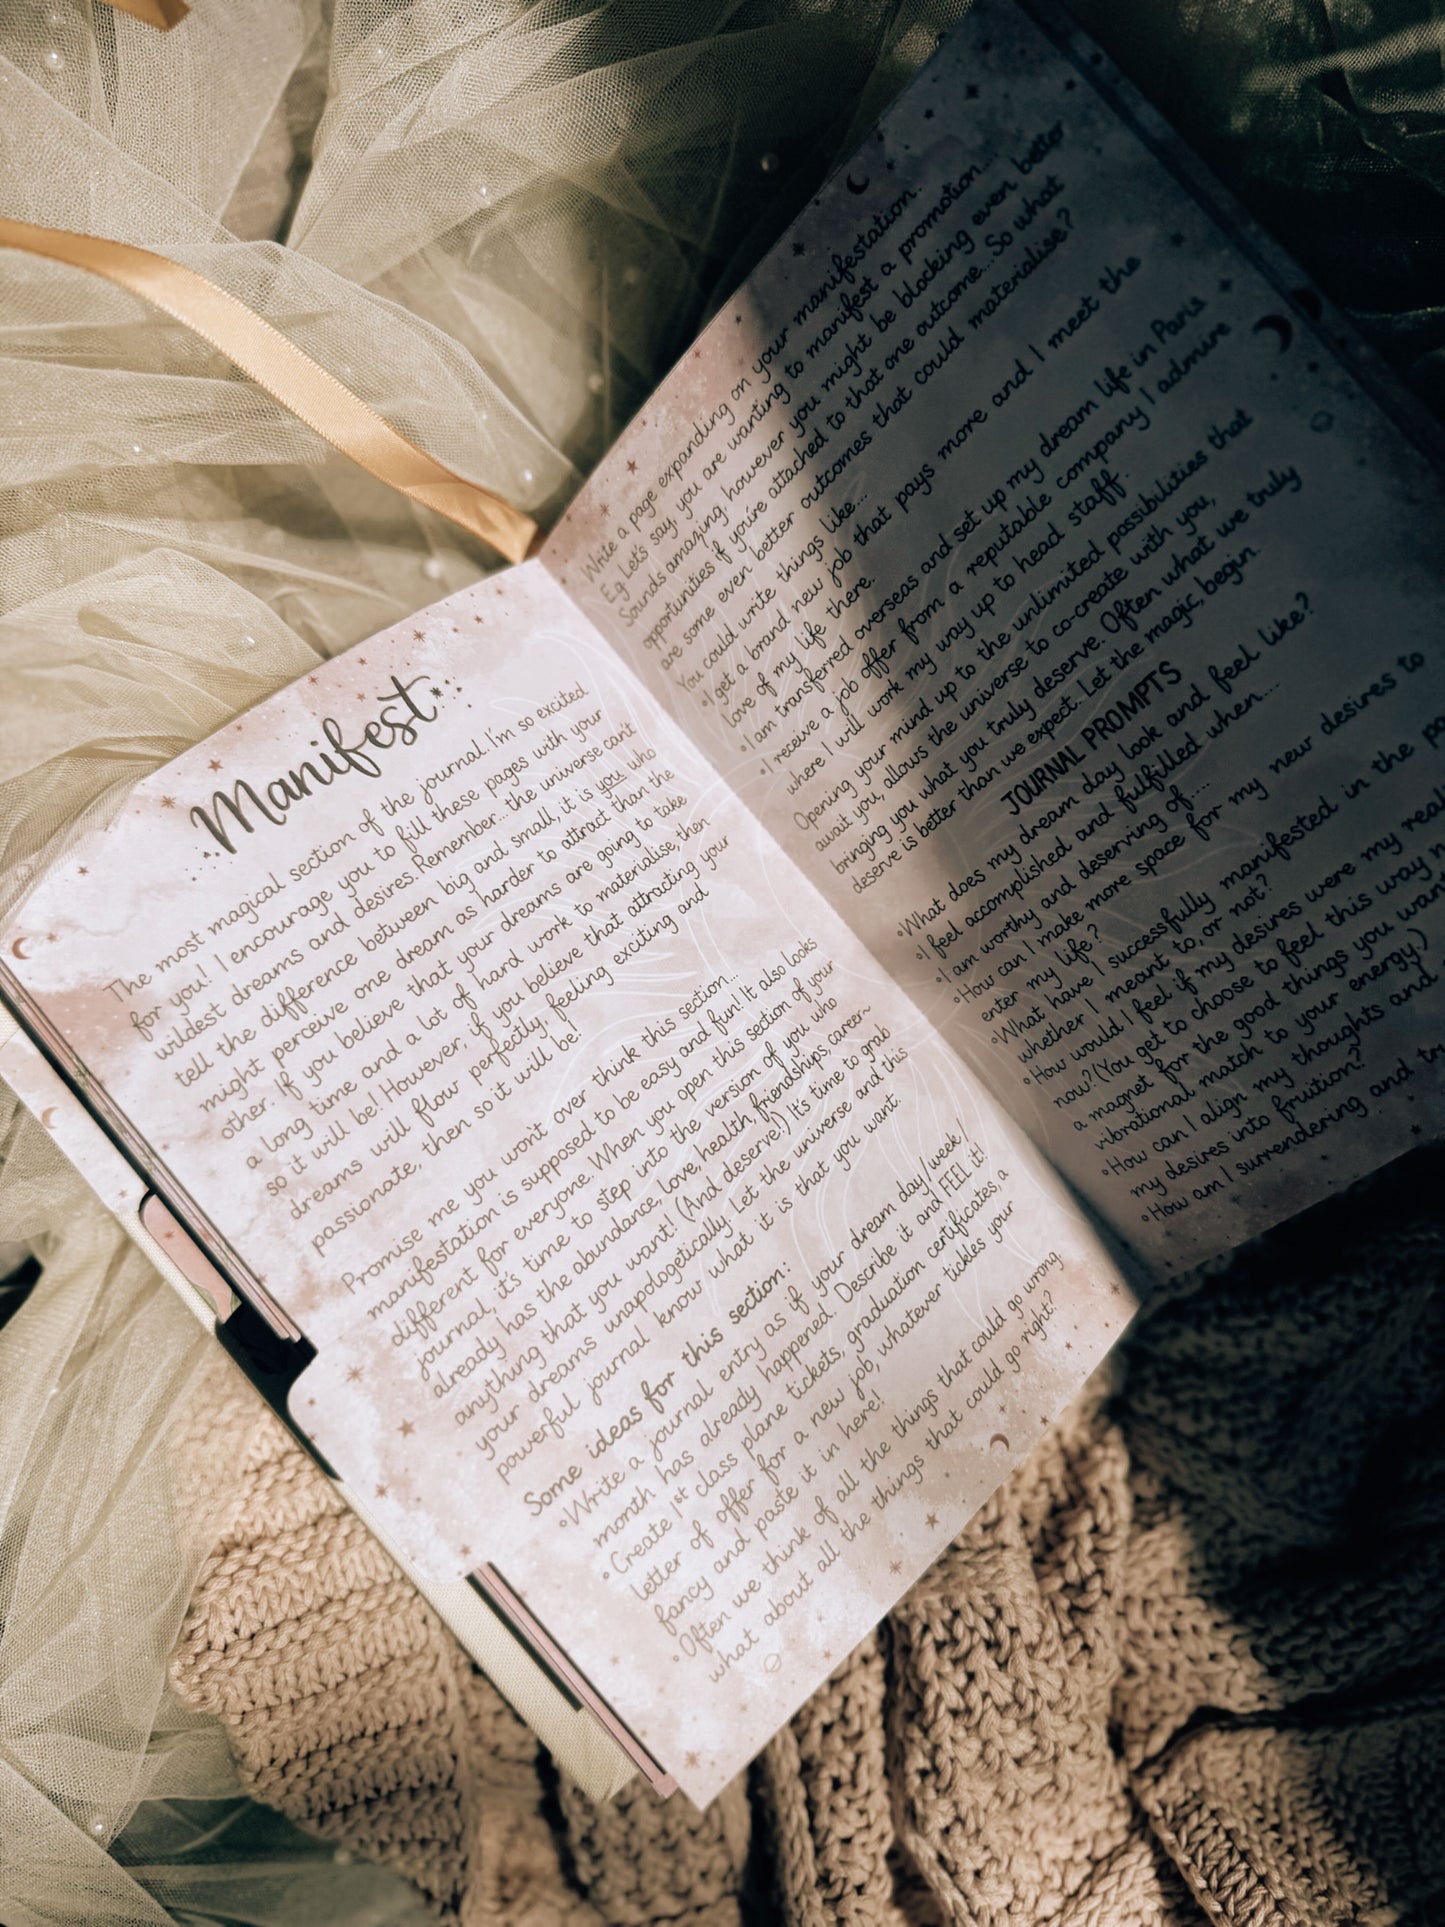 Manifest
The most magical section of the journal. I'm so excited
for you! I encourage you to fill these pages with your
wildest dreams and desires. Remember... the universe can't
tell the difference between big and small, it is you who
might perceive one dream as harder to attract than the
other. If you believe that your dreams are going to take
a long time and a lot of hard work to materialise, then
so it will be! However, if you believe that attracting your
dreams will flow perfectly, feeling exciting and
passionate, then so it will be!
Promise me you won't over think this section...
manifestation is supposed to be easy and fun! It also looks
different for everyone. When you open this section of your
journal, it's time to step into the version of you who
already has the abundance, love, health, friendships, career~
anything that you want! (And deserve!) It's time to grab
your dreams unapologetically. Let the universe and this
powerful journal know what it is that you want.
Some ideas for this section:
°Write a journal entry as if your dream day/week/
month has already happened. Describe it and FEEL it!
°Create 1st class plane tickets, graduation certificates, a
letter of offer for a new job, whatever tickles your
fancy and paste it in here!
°Often we think of all the things that could go wrong,
what about all the things that could go right?
Write a page expanding on your manifestation.
Eg Let's say, you are wanting to manifest a promotion...
Sounds amazing, however you might be blocking even better
opportunities if you're attached to that one outcome... So what
are some even better outcomes that could materialise?
You could write things like...
°I get a brand new job that pays more and I meet the
love of my life there.
°I am transferred overseas and set up my dream life in Paris
°I receive a job offer from a reputable company I admire
where I will work my way up to head staff.
Opening your mind up to the unlimited possibilities that
await you, allows the universe to co-create with you,
bringing you what you truly deserve. Often what we truly
deserve is better than we expect. Let the magic, begin.
JOURNAL PROMPTS
°What does my dream day look and feel like?
°I feel accomplished and fulfilled when...
°I am worthy and deserving of....
°How can I make more space for my new desires to
enter my life?
°What have I successfully manifested in the
whether I meant to, or not?
°How would I feel if my desires were my
now? (You get to choose to feel this way
a magnet for the good things you want
vibrational match to your energy.)
°How can I align my thoughts and
my desires into fruition?
°How am I surrendering and